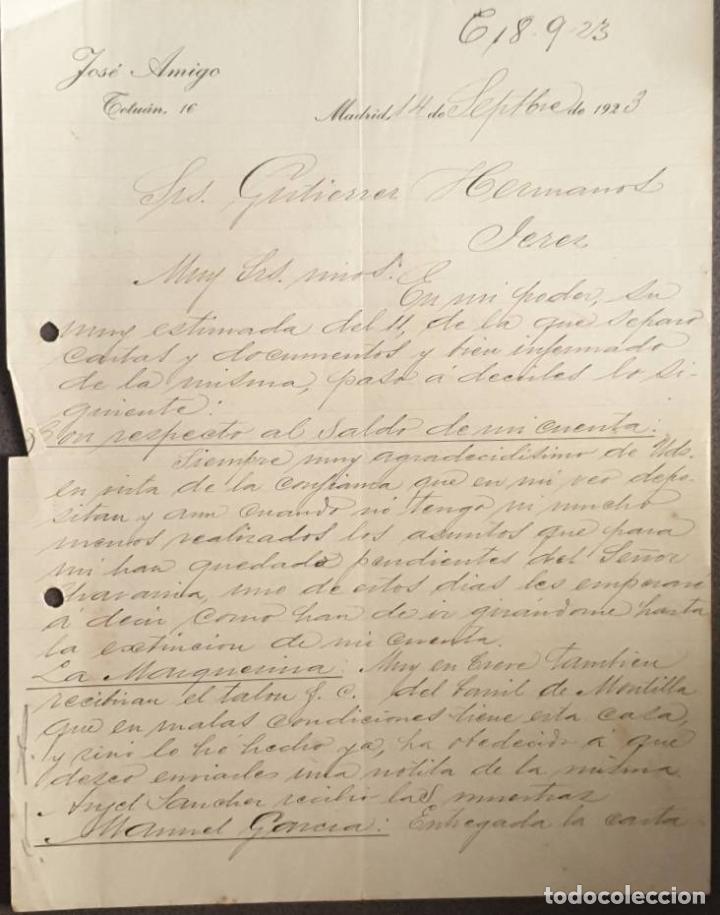 C 18-9-23
José Amigo
Tetuán, 16
Madrid, 14 de Septbre de 1923
Srs. Gutierrez Hermanos
Jerez
Muy Srs. mios:
En mi poder, su
muy estimada del 11, de la que separo
cartas y documentos y bien informado
de la misma, paso á decirles lo si-
guiente:
Con respecto al saldo de mi cuenta:
Siempre muy agradecidisimo de Uds.
en vista de la confianza que en mi veo depo-
sitan y aun cuando no tengo ni mucho
menos realizados los asuntos que para
mi han quedado pendientes del Señor
uno de estos dias les empezaré
á decir como han de ir girándome hasta
la extincion de mi cuenta.
La Marquesina: Muy en breve tambien
recibiran el talon f. c. del barril de Montilla
que en malas condiciones tiene esta casa,
y sino lo hé hecho ya, ha obedecido á que
deseo enviarles una notita de la misma
Angel Sanchez recibio las muestras
Manuel Garcia: Entregada la carta
todocoleccion.net